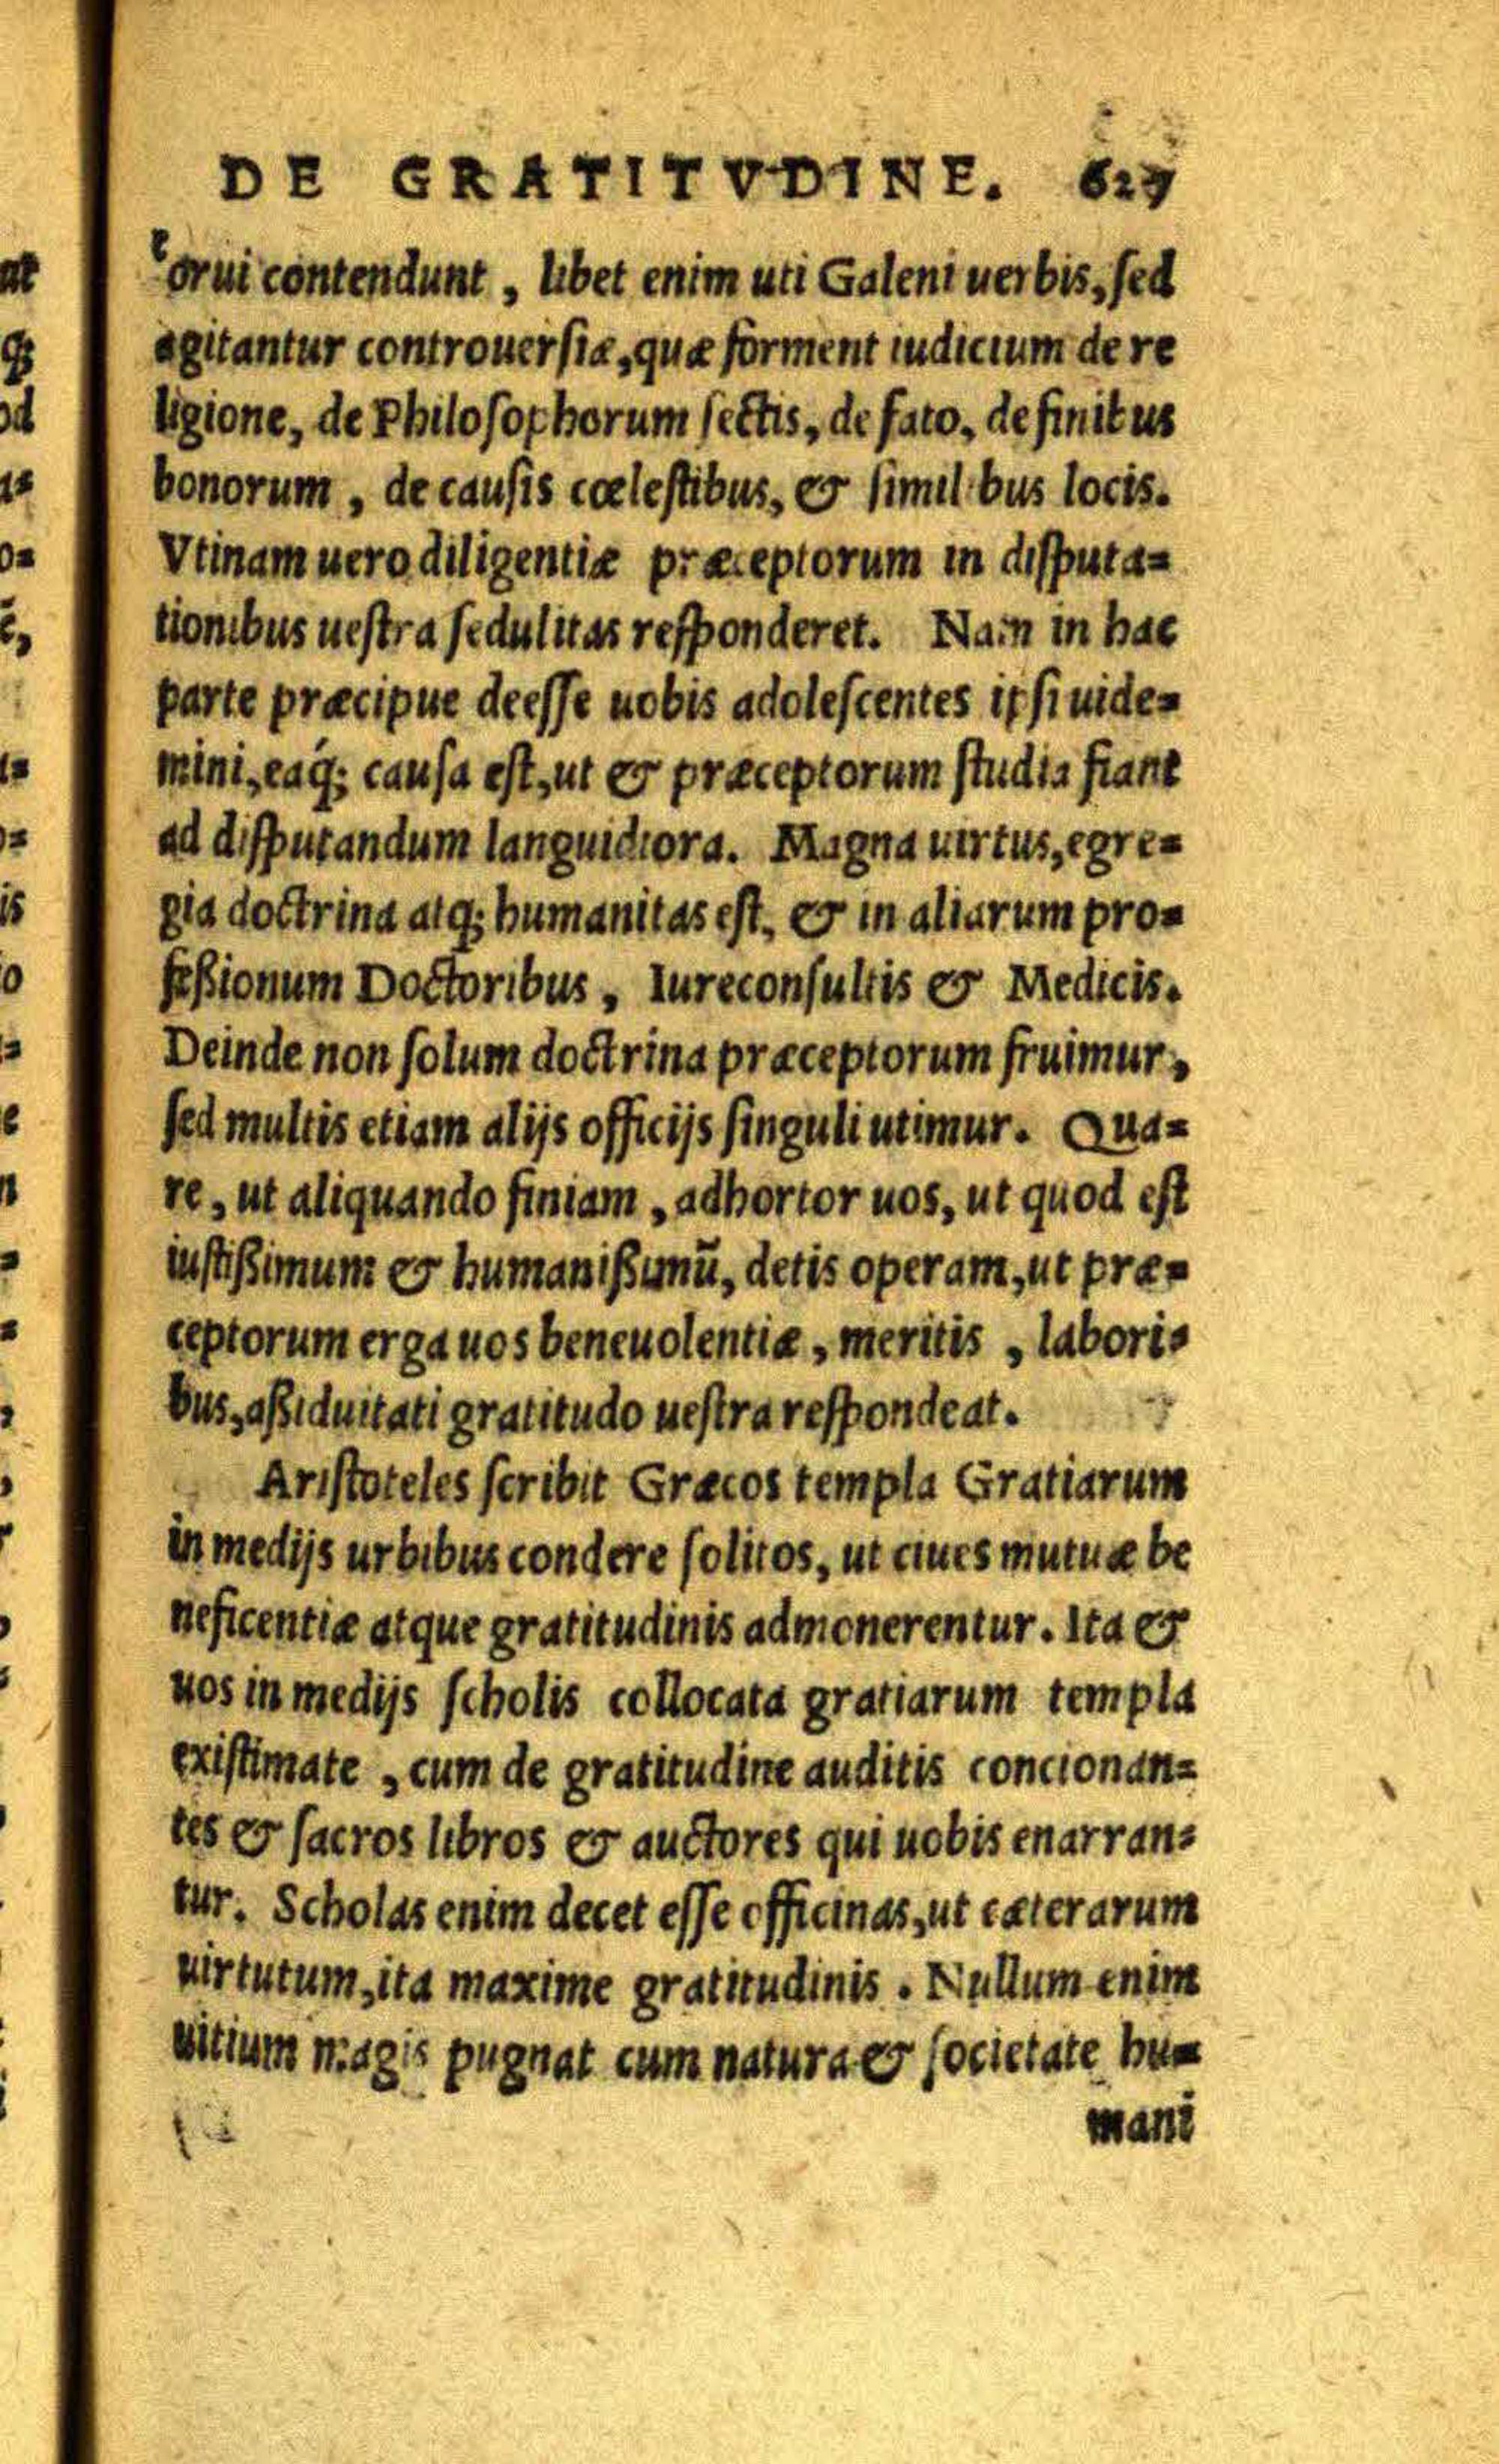 DE GRATITVDINE. 627
torui contendunt, libet enim uti Galeni uerbis, sed
agitantur controuersiæ, quæ forment iudicium de re
ligione, de Philosophorum sectis, de fato, de finibus
bonorum, de causis cœlestibus, & similibus locis.
Vtinam uero diligentiæ præceptorum in disputa=
tionibus uestra sedulitas responderet. Nam in hac
parte præcipue deesse uobis adolescentes ipsi uide=
mini, eáq; causa est, ut & præceptorum studia fiant
ad disputandum languidiora. Magna uirtus, egre=
gia doctrina atq; humanitas est, & in aliarum pro=
feßionum Doctoribus, Iureconsultis & Medicis.
Deinde non solum doctrina præceptorum fruimur,
sed multis etiam alijs officijs singuli utimur. Qua=
re, ut aliquando finiam, adhortor uos, ut quod est
iustißimum & humanißimū, detis operam, ut præ=
ceptorum erga uos beneuolentiæ, meritis, labori=
bus, aßiduitati gratitudo uestra respondeat.
Aristoteles scribit Græcos templa Gratiarum
in medijs urbibus condere solitos, ut ciues mutuæ be
neficentiæ atque gratitudinis admonerentur. Ita &
uos in medijs scholis collocata gratiarum templa
existimate, cum de gratitudine auditis concionan=
tes & sacros libros & auctores qui uobis enarran=
tur. Scholas enim decet esse officinas, ut cæterarum
uirtutum, ita maxime gratitudinis. Nullum enim
uitium magis pugnat cum natura & societate hu=
mani